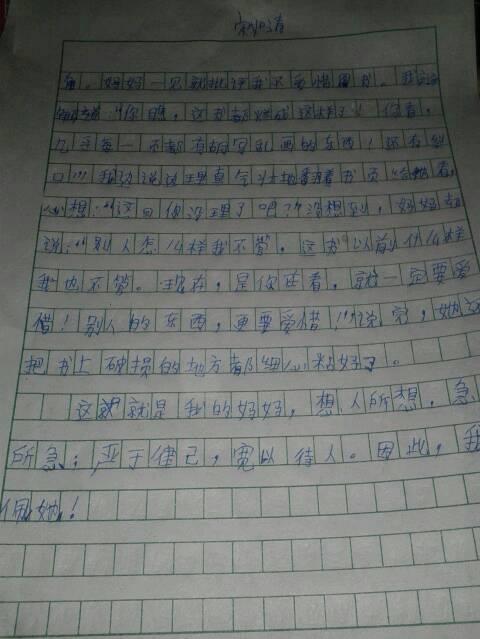 妈妈一见就批评我不爱惜图书。我
"你瞧,这书都烂成这样了!你看,
几乎每一页都有胡写乱画的东西!还有
口!"我边说边理直气壮地翻着书页
心想:"这回你没理了吧?"没想到,妈妈却
说:"别人怎么样我不管,这书以前什么样
我也不管。现在,是你在看,就一定要爱
惜!别人的东西,更要爱惜!"说完,她
把书上破损的地方都细心粘好了。
这就是我的妈妈,想人所想,急
所急;严于律己,宽以待人。因此,我
佩她!